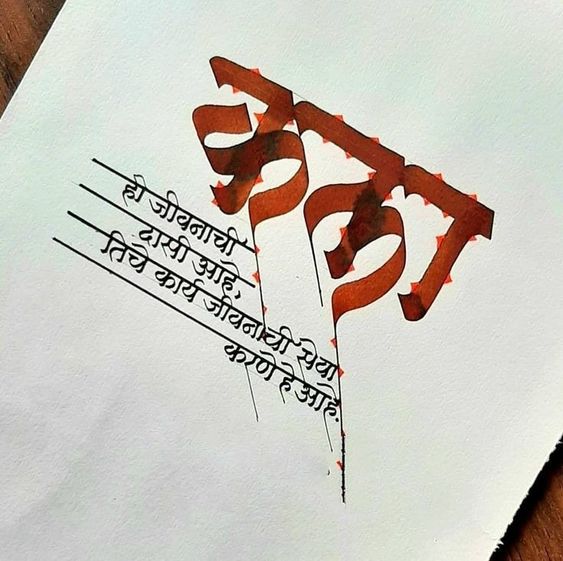 कला
ही जीवनाची
दासी आहे,
तिचे कार्य जीवनाची सेवा
करणे हे आहे.